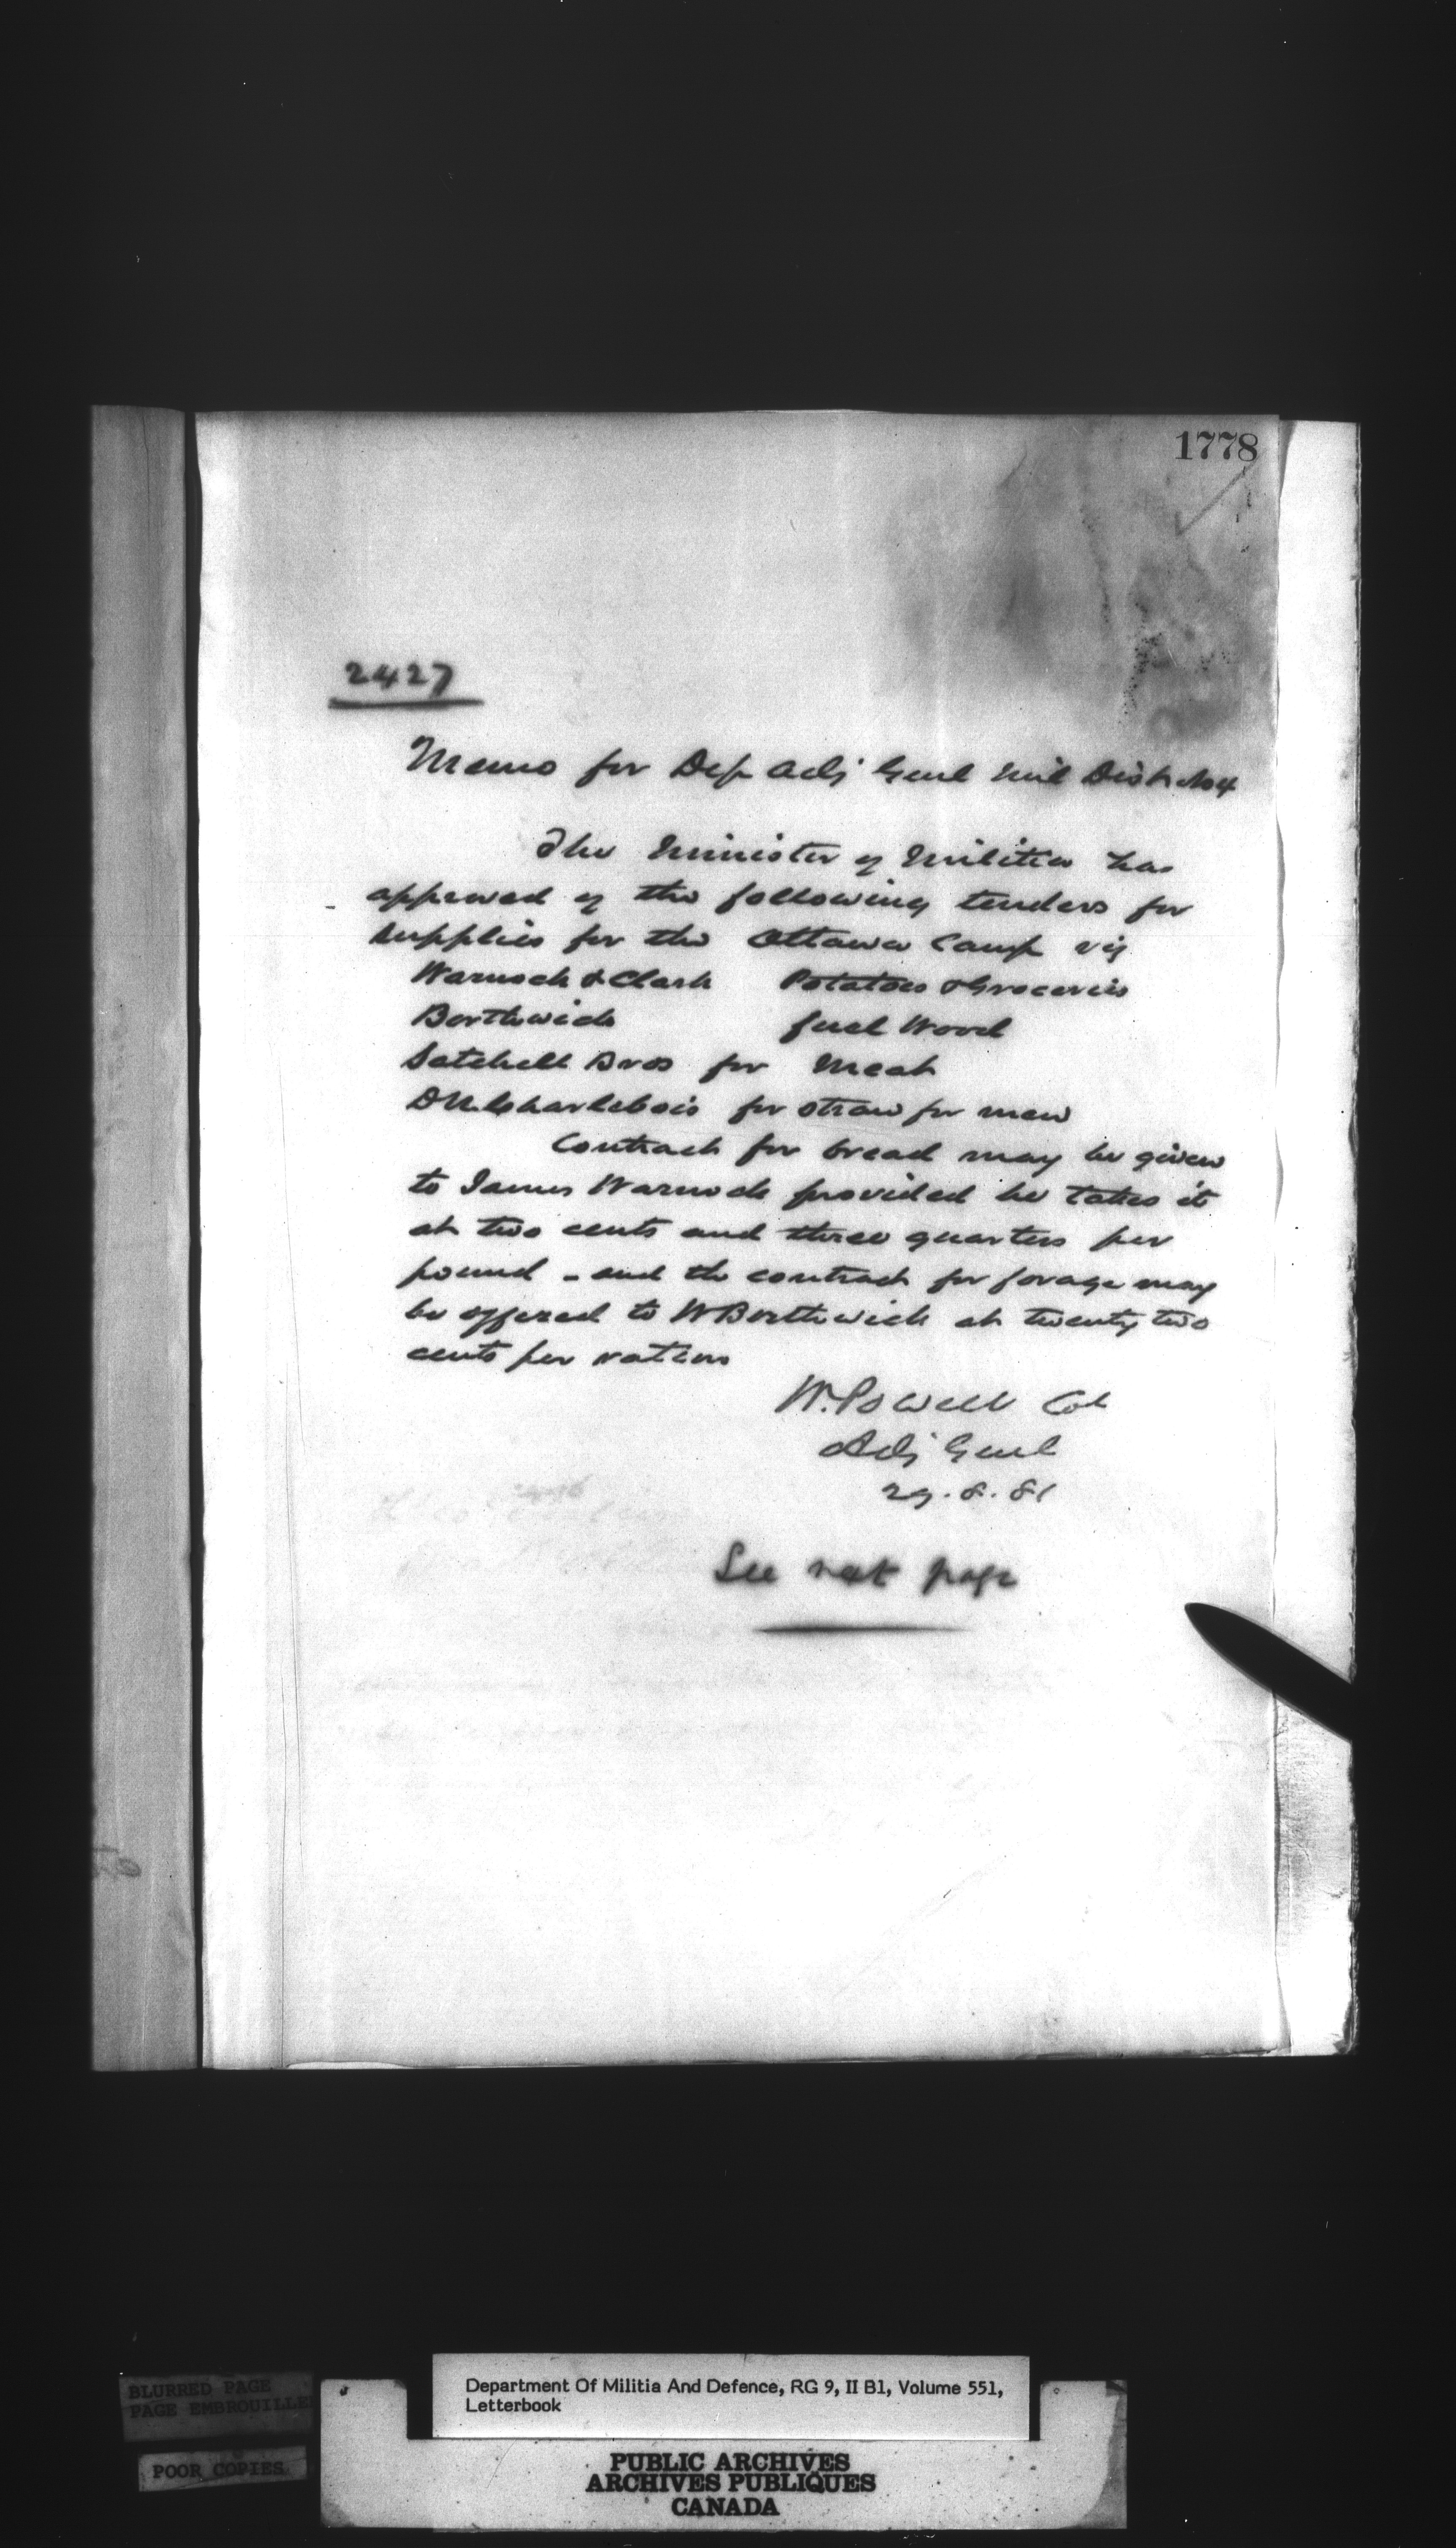 1778
2427
Memo for Dep Adj Genl Mil Dist No 4
The Minister of Militia has
approved of the following tenders for
supplies for the Ottawa Camp viz
Warnock & Clark Potatoes & Groceries
Borthwick fuel Wood
Satchell Bros for Meat
D N Charlebois for straw for men
Contract for bread may be given
to James Warnock provided he takes it
at two cents and three quarters per
pound - and the contract for forage may
be offered to W Borthwick at twenty two
cents per ration
W. Powell Col
Adj Genl
29.8.81
See next page
BLURRED PAGE
PAGE EMBROUILLE
POOR COPIES
Department Of Militia And Defence, RG 9, II B1, Volume 551,
Letterbook
PUBLIC ARCHIVES
ARCHIVES PUBLIQUES
CANADA